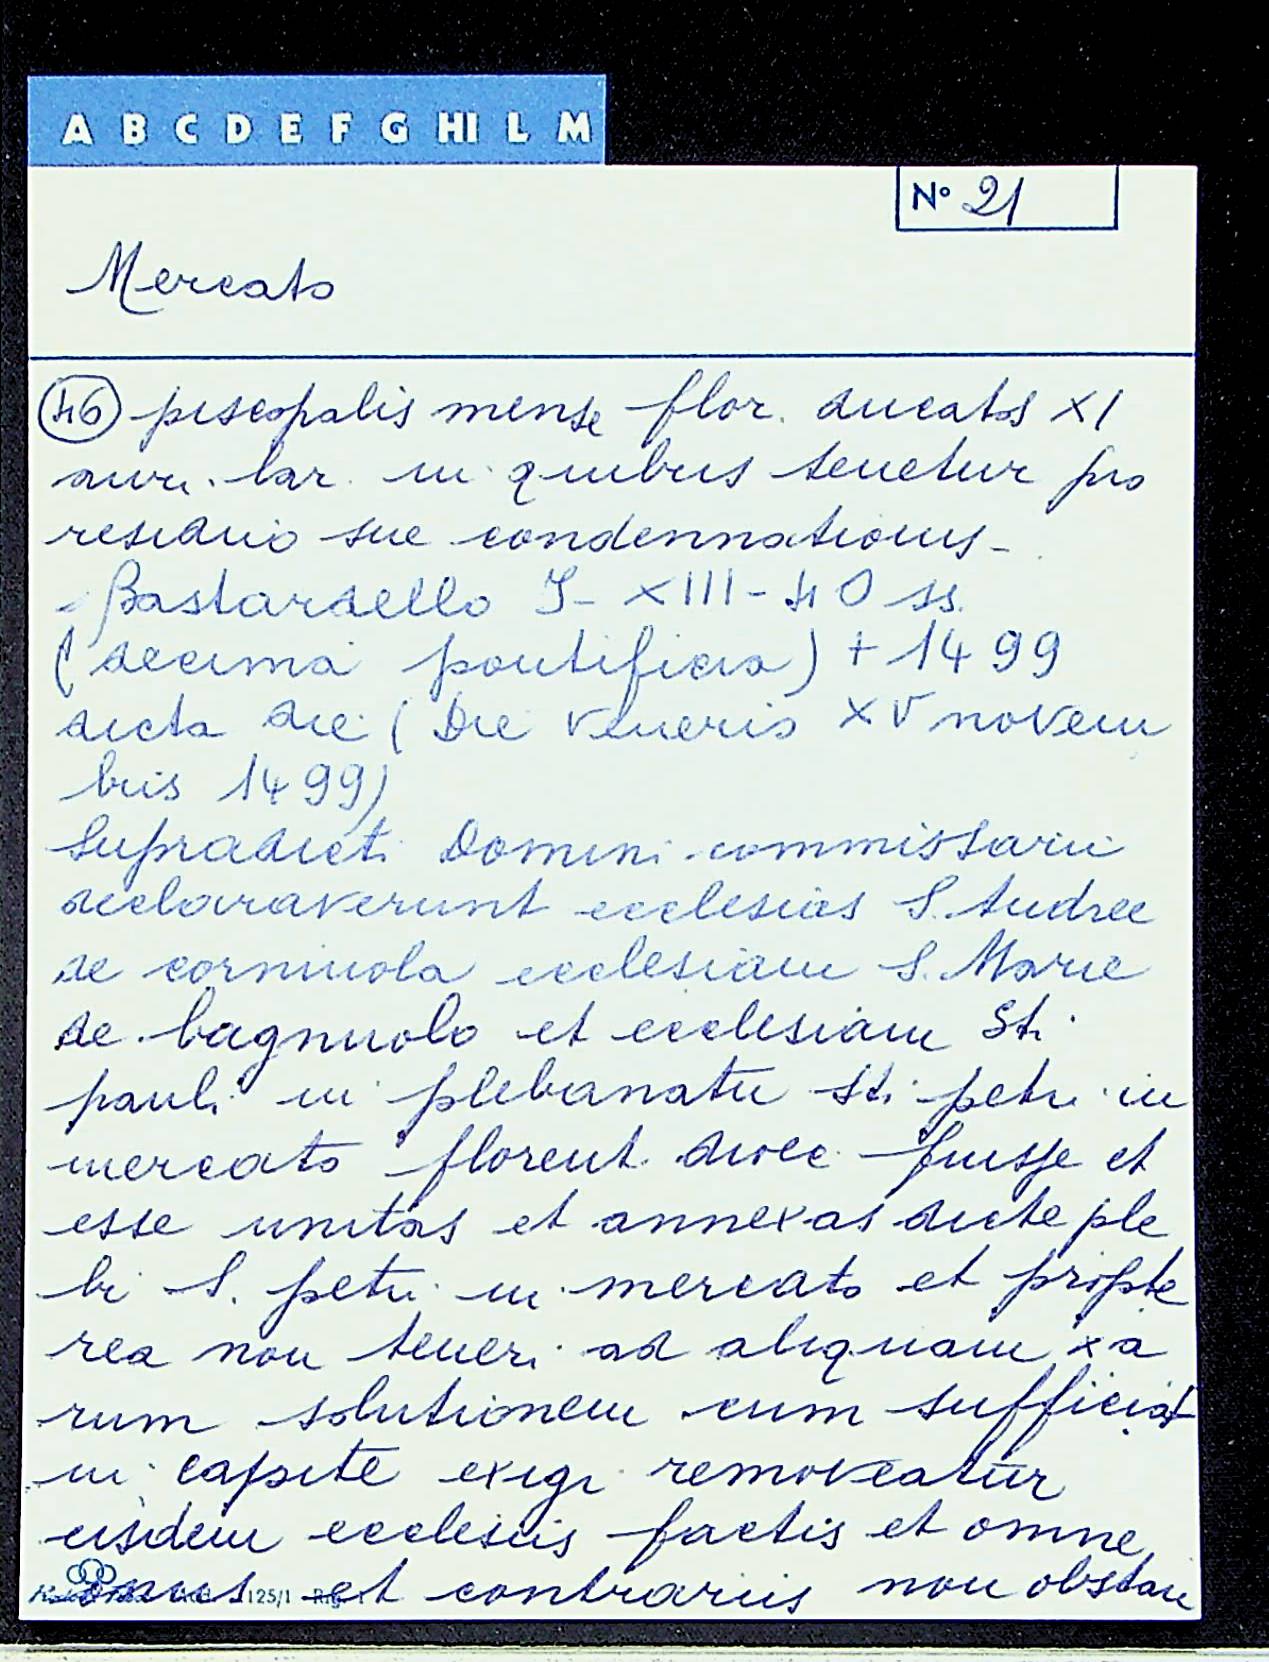 A B C D E F G HI L M
N° 21
Mercato
46 piscopalis mense flor. ducatos XI
auri. lar. in quibus tenetur pro
residuo sue condennationis -
- Bastardello I - XIII - 40 ss.
(decima pontificia) + 1499
dicta die (Die Veneris XV novem
bris 1499)
Supradicti Domini commissarii
declaraverunt ecclesias S. Andree
de corniuola ecclesiam S. Marie
de bagnuolo et ecclesiam Sti
pauli in plebanatu sti petri in
mercato florent. dioec. fuisse et
esse unitas et annexas dicte ple
bi S. petri in mercato et propte
rea non teneri ad aliquam xa
rum solutionem cum sufficiat
in capite exigi removeatur
eisdem ecclesiis factis et omne
onus et contrariis non obstan
125/1